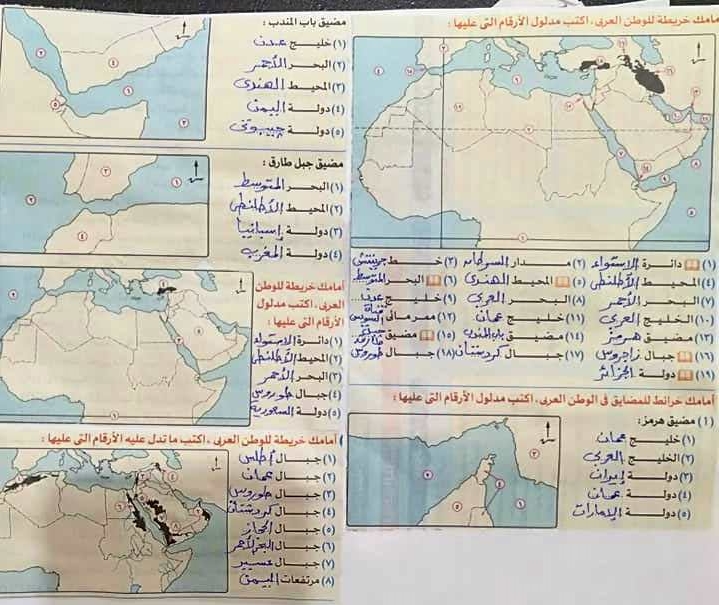 أمامك خريطة للوطن العربى، اكتب مدلول الأرقام التى عليها :
(١) دائرة الاستواء (٢) مدار السرطان (٣) خط جرينتش
(٤) المحيط الأطلنطى (٥) المحيط الهندى (٦) البحر المتوسط
(٧) البحر الأحمر (٨) البحر العربى (٩) خليج عدن
(١٠) الخليج العربى (١١) خليج عمان (١٢) ممر مائى قناة السويس
(١٣) مضيق هرمز (١٤) مضيق باب المندب (١٥) مضيق جبل طارق
(١٦) جبال زاجروس (١٧) جبال كردستان (١٨) جبال طوروس
(١٩) دولة الجزائر
أمامك خرائط للمضايق فى الوطن العربى، اكتب مدلول الأرقام التى عليها :
(١) مضيق هرمز :
(١) خليج عمان
(٢) الخليج العربى
(٣) دولة إيران
(٤) دولة عمان
(٥) دولة الإمارات
مضيق باب المندب :
(١) خليج عدن
(٢) البحر الأحمر
(٣) المحيط الهندى
(٤) دولة اليمن
(٥) دولة جيبوتى
مضيق جبل طارق :
(١) البحر المتوسط
(٢) المحيط الأطلنطى
(٣) دولة إسبانيا
(٤) دولة المغرب
أمامك خريطة للوطن
العربى، اكتب مدلول
الأرقام التى عليها :
(١) دائرة الاستواء
(٢) المحيط الأطلنطى
(٣) البحر الأحمر
(٤) جبال طوروس
(٥) دولة السعودية
أمامك خريطة للوطن العربى، اكتب ما تدل عليه الأرقام التى عليها :
(١) جبال أطلس
(٢) جبال عمان
(٣) جبال طوروس
(٤) جبال كردستان
(٥) جبال الحجاز
(٦) جبال البحر الأحمر
(٧) جبال عسير
(٨) مرتفعات اليمن